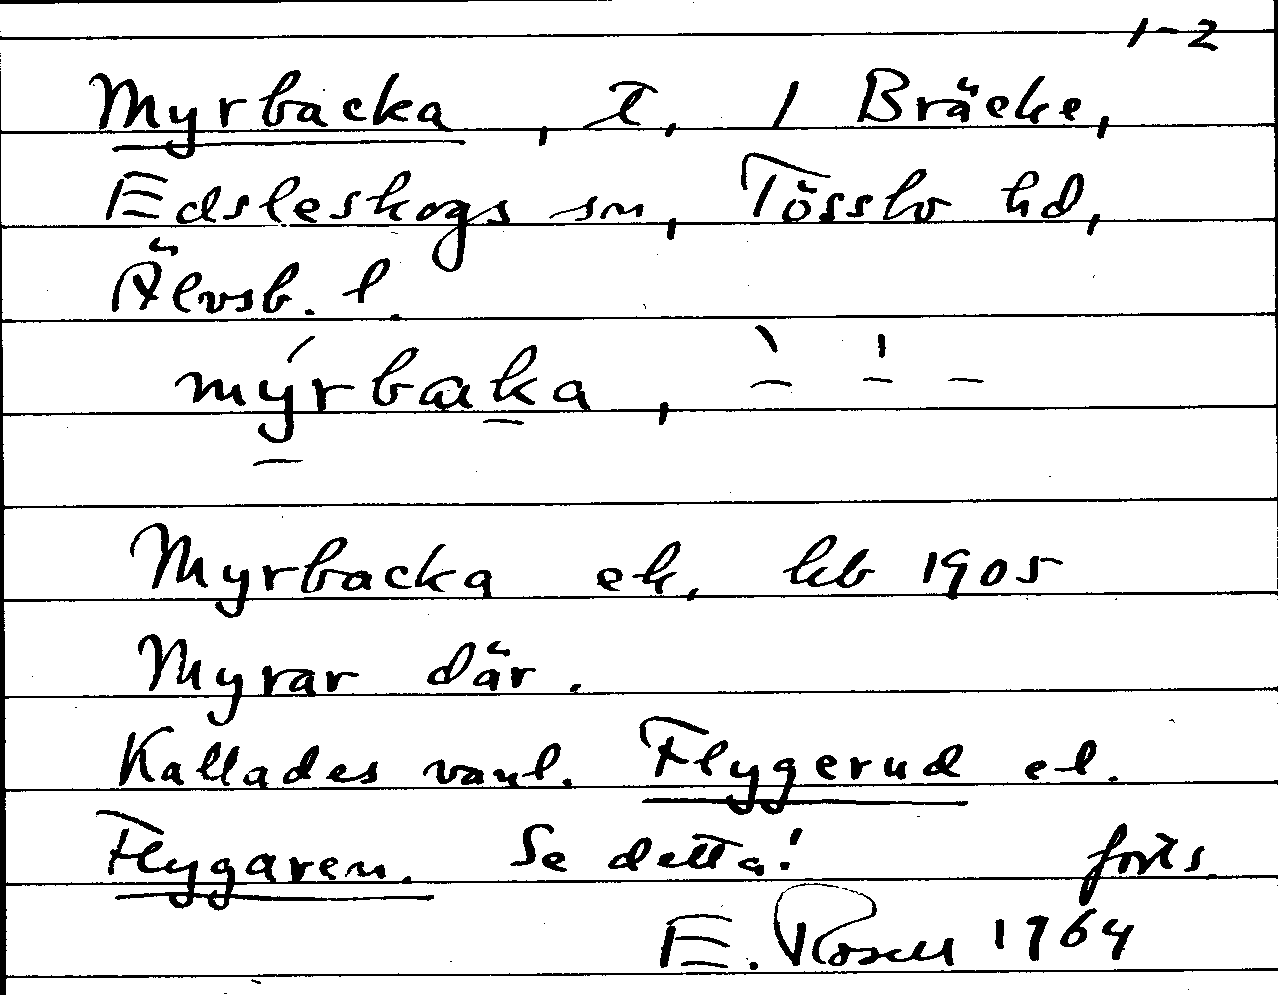 1-2
Myrbacka, t, 1 Bräcke,
Edsleskogs sn, Tösslo hd,
Älvsb. l.
mýrbaka, ` ' 
Myrbacka ek, kb 1905
Myrar där.
Kallades vanl. Flygerud el.
Flygaren. Se detta! forts.
E. Rosell 1964